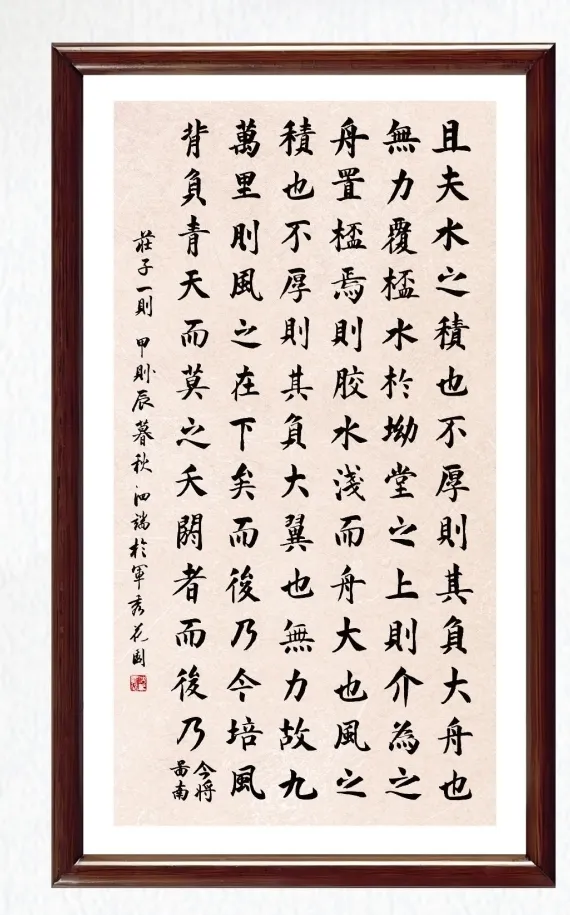 且夫水之積也不厚則其負大舟也
無力覆桮水於坳堂之上則介為之
舟置桮焉則胶水淺而舟大也風之
積也不厚則其負大翼也無力故九
萬里則風之在下矣而後乃今培風
背負青天而莫之夭閼者而後乃
今將
啚南
莊子一則 甲則辰暮秋 泗端於軍秀花園